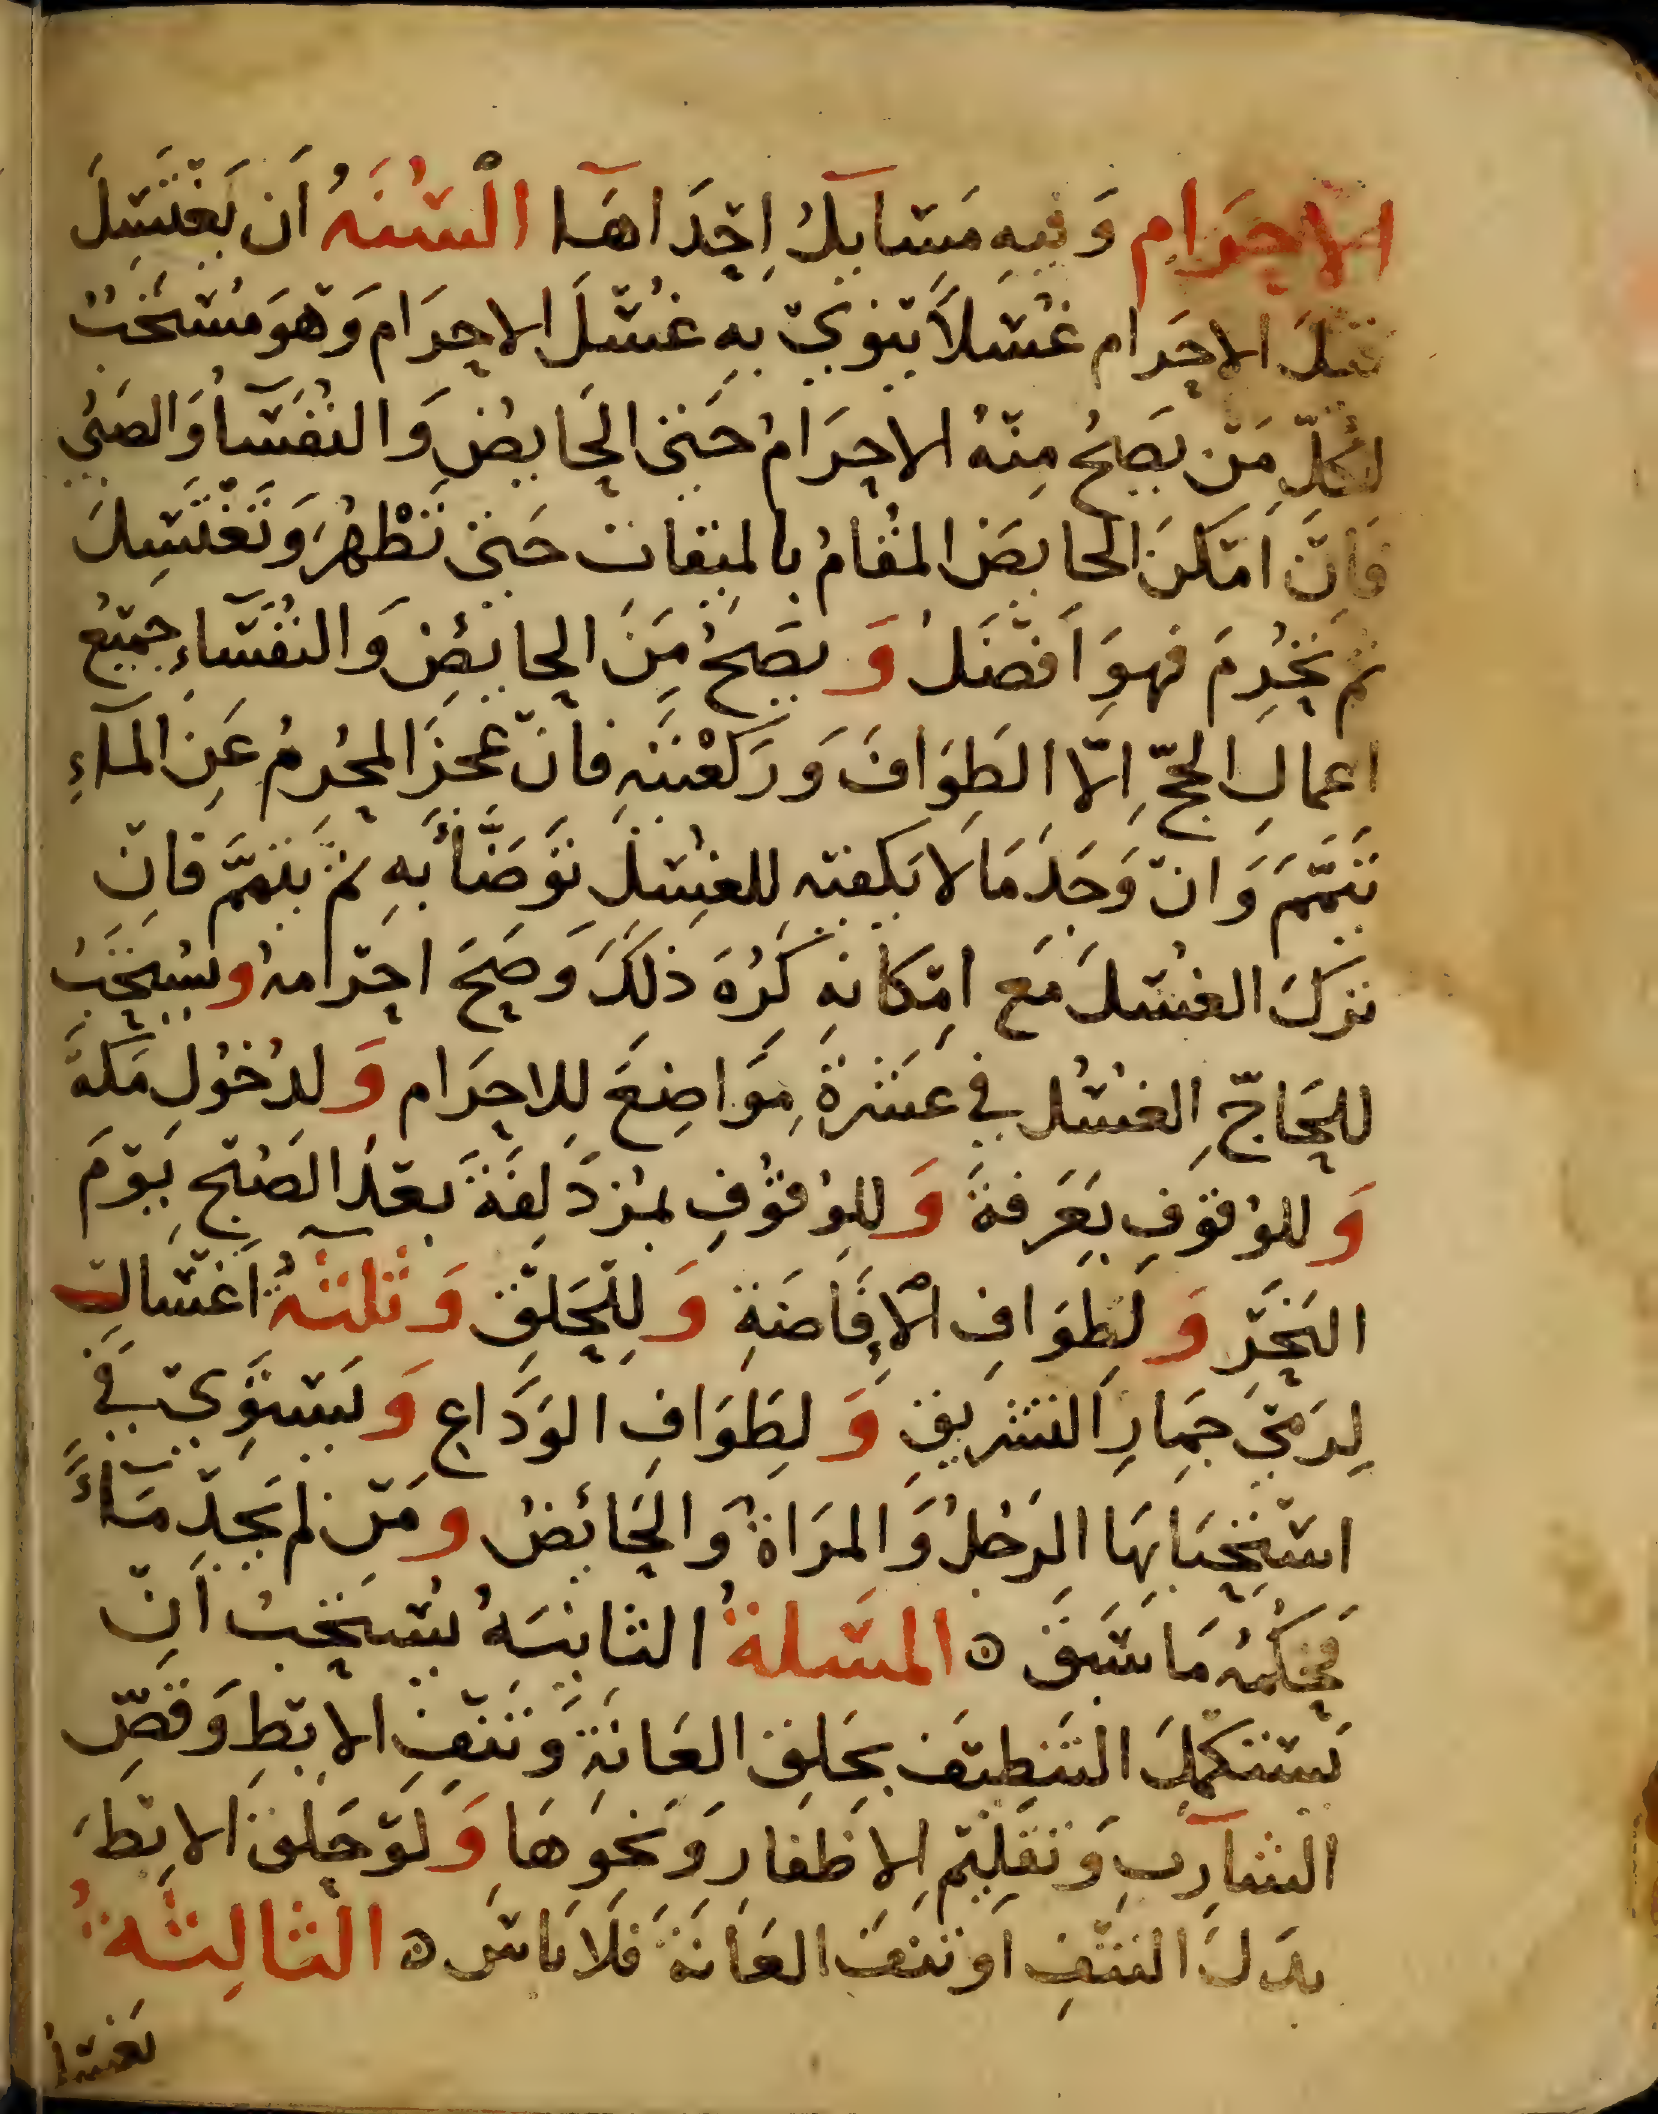 الاحرام وَفيهِ مَسَايلُ اِحْدَاهَا السُنَةُ اَن يَغْتَسِلَ
قبلَ الاحرَام غُسْلاً ينوي به غُسْلَ الاحرَام وَهوَ مُسْتَحَبٌ
لكُلِّ مَنْ يَصِحُ مِنْهُ الاحرَامُ حَتى الحَايضُ وَالنُفَسَآءُ وَالصَبيُ
فَاِنْ اَمْكَنَ الحايضَ المقَامُ بالميقات حَتى تَطْهُرَ وَتَغْتَسِلَ
ثم تُحْرِمَ فَهوَ اَفْضَلُ وَ يَصِحُ مِنَ الحايضِ وَالنُفَسَاءِ جميْعُ
اعمالِ الحجِّ اِلّا الطَوَافَ وَرَكْعَتَيْهِ فان عجزَ المحْرِمُ عَنِ المآءِ
تَيَمَّمَ وَانْ وَجَدَ مَا لا يَكفيْهِ للغُسْلِ تَوَضَّأَ بهِ ثمَ يتيمَّمُ فانْ
تركَ الغُسْلَ مَع اِمْكانهِ كُرِهَ ذلكَ وَصحَ احْرَامهُ ويُسْتحَبُ
للحَاجِّ الغسْلُ في عَشَرَةِ مَوَاضِعَ للاحرَام وَلدخُولِ مَكةَ
وَللوُقوْفِ بعَرَفةَ وَللوُقوْفِ بمزدَلِفَةَ بعْدَ الصُبْحِ يَوْمَ
النَحْرِ وَ لطَوَافِ الْاِفَاضَةِ وَ لِلْحَلْقِ وَثلثةُ اَغْسَالٍ
لِرَمْيِ جمَارِ التشريقِ وَ لطَوَافِ الوَدَاعِ وَيَسْتوِيْ في
استحْبَابهَا الرَجُلُ وَالمرَاةُ وَالحَائِضُ وَمَنْ لم يَجِدْ مَآءً
فحكمُهُ مَا سَبَقَ ه المسْلةُ الثانيَةُ يُسْتحَبُ اَنْ
يَسْتَكمِلَ التنظيْفَ بحَلقِ العَانَةِ وَنَتْفِ الابْطِ وَقَصِّ
الشاربِ وَتقليْمِ الاظفارِ وَنحوهَا وَلوْ حَلقَ الابْطَ
بدَلَ النتْفِ اَو نتفَ العَانَةَ فَلَا باسَ ه الثالِثةُ
يغسل